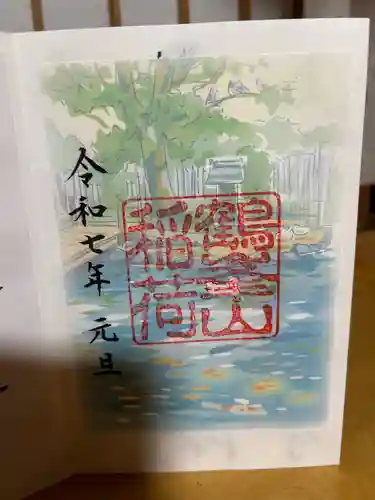 鶴羊
稲荷
令和七年 元旦